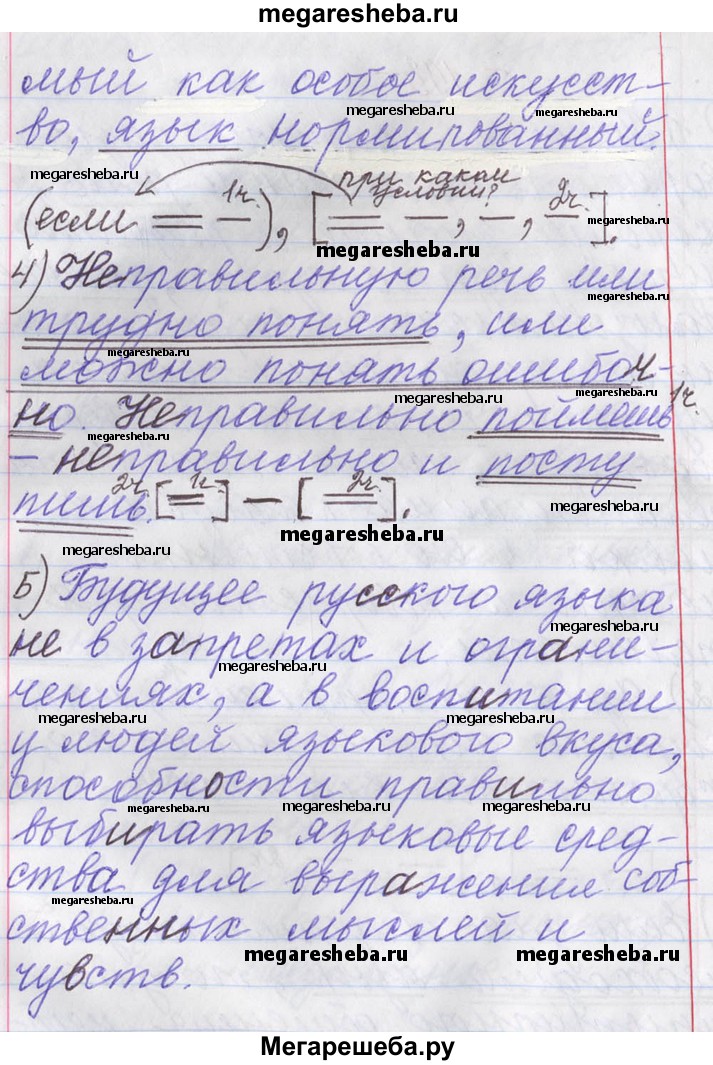 megaresheba.ru
мый как особое искусст-
megaresheba.ru
во, язык нормированный.
megaresheba.ru
megaresheba.ru
при каком
условии?
1ч. 2ч.
(если == —), [== —, —, —].
megaresheba.ru
megaresheba.ru
4) Неправильную речь или
megaresheba.ru
трудно понять, или
megaresheba.ru
можно понять ошибоч-
megaresheba.ru
но. Неправильно поймешь 1ч.
megaresheba.ru
– неправильно и посту
megaresheba.ru
пишь. 2ч. [== 1ч.] — [== 2ч.].
megaresheba.ru
megaresheba.ru
5) Будущее русского языка
megaresheba.ru
не в запретах и ограни-
megaresheba.ru
чениях, а в воспитании
megaresheba.ru
megaresheba.ru
у людей языкового вкуса,
способности правильно
megaresheba.ru
megaresheba.ru
megaresheba.ru
выбирать языковые сред-
ства для выражения соб-
megaresheba.ru
ственных мыслей и
megaresheba.ru
megaresheba.ru
чувств.
Мегарешеба.ру